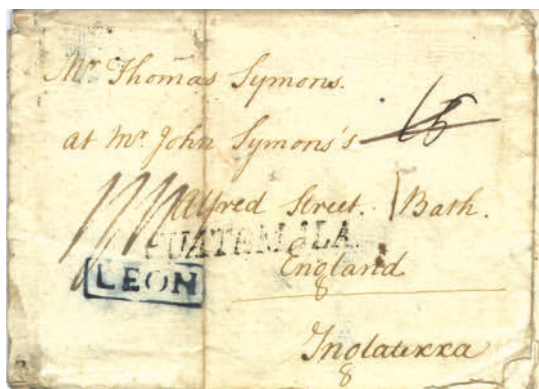 Mr. Thomas Symons.
at Mr. John Symons's
Alfred Street. Bath.
GUATEMALA.
England
LEON
Inglaterra